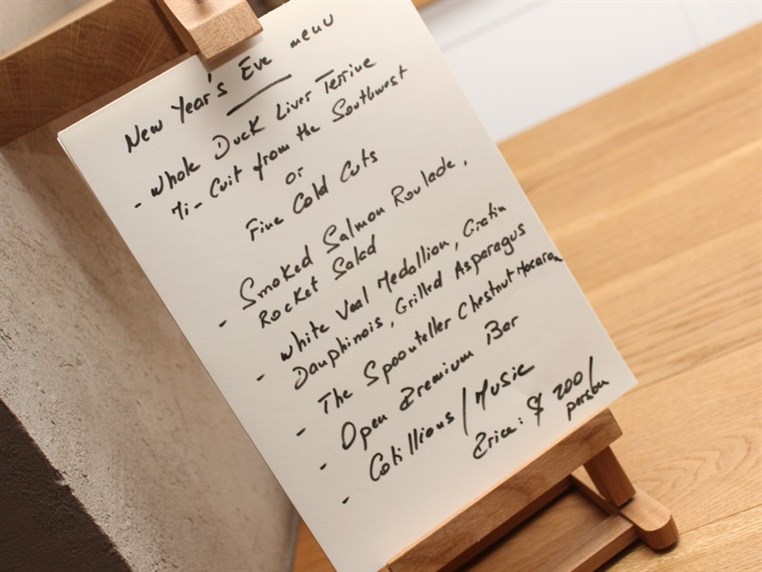 New Year's Eve menu
- Whole Duck Liver Terrine
Mi-Cuit from the Southwest
or
Fine Cold Cuts
- Smoked Salmon Roulade,
Rocket Salad
- White Veal Medallion, Gratin
Dauphinois, Grilled Asparagus
- The Spoonteller Chestnut Macaron
- Open Premium Bar
- Cotillions / Music
Price: $ 200/
person